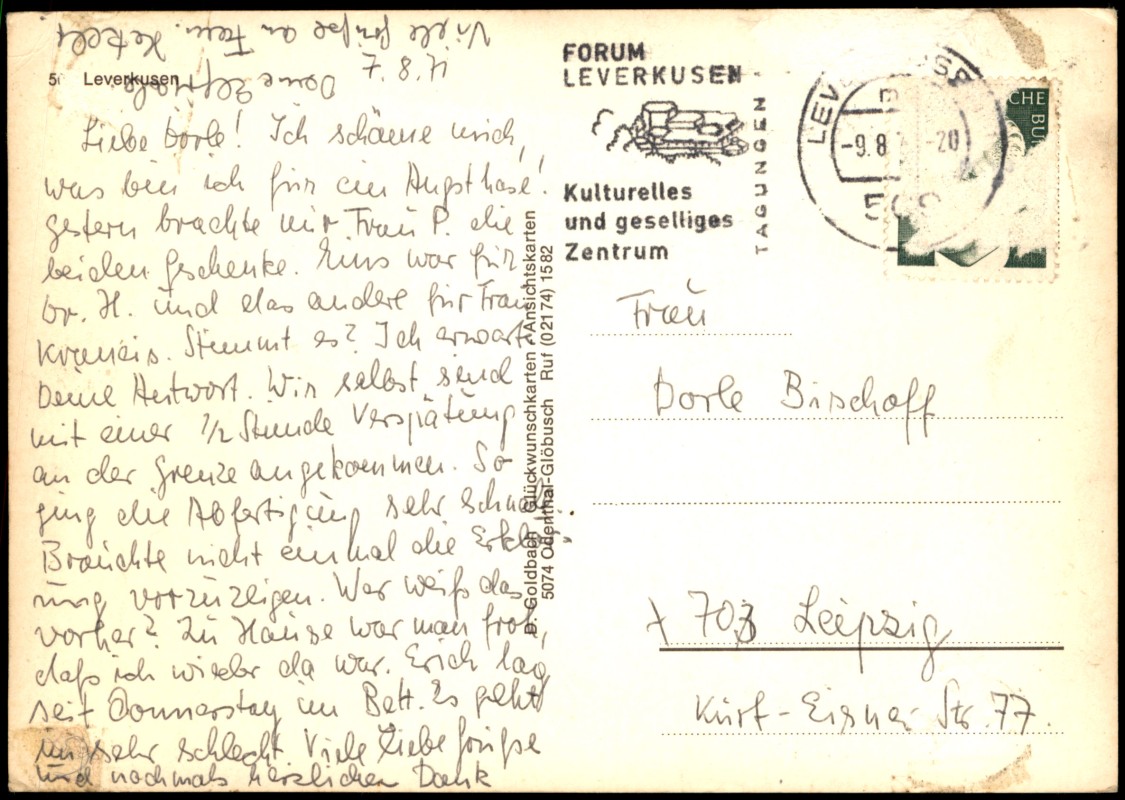 Viele Grüße an Fam. Hetzel
7.8.71
Deine
Leverkusen
Liebe Dorle! Ich schäme mich,
was bin ich für ein Angsthase!
gestern brachte mir Frau P. die
beiden Geschenke. Eins war für
Dr. H. und das andere für Frau
Stimmt es? Ich erwarte
Deine Antwort. Wir selbst sind
mit einer 1/2 Stunde Verspätung
an der Grenze angekommen. So
ging die Abfertigung sehr schnell.
Brauchte nicht einmal die Erklär-
ung vorzuzeigen. Wer weiß das
vorher? Zu Hause war man froh,
daß ich wieder da war. Erich lag
seit Donnerstag im Bett. Es geht
im sehr schlecht. Viele liebe Grüße
und nochmals herzlichen Dank
D. Goldbach Glückwunschkarten - Ansichtskarten
5074 Odenthal-Glöbusch Ruf (02174) 1582
FORUM
LEVERKUSEN
TAGUNGEN
Kulturelles
und geselliges
Zentrum
LEV
-9.8
-20
CHE BU
Frau
Dorle Bischoff
703 Leipzig
Kurt-Eisner Str. 77.